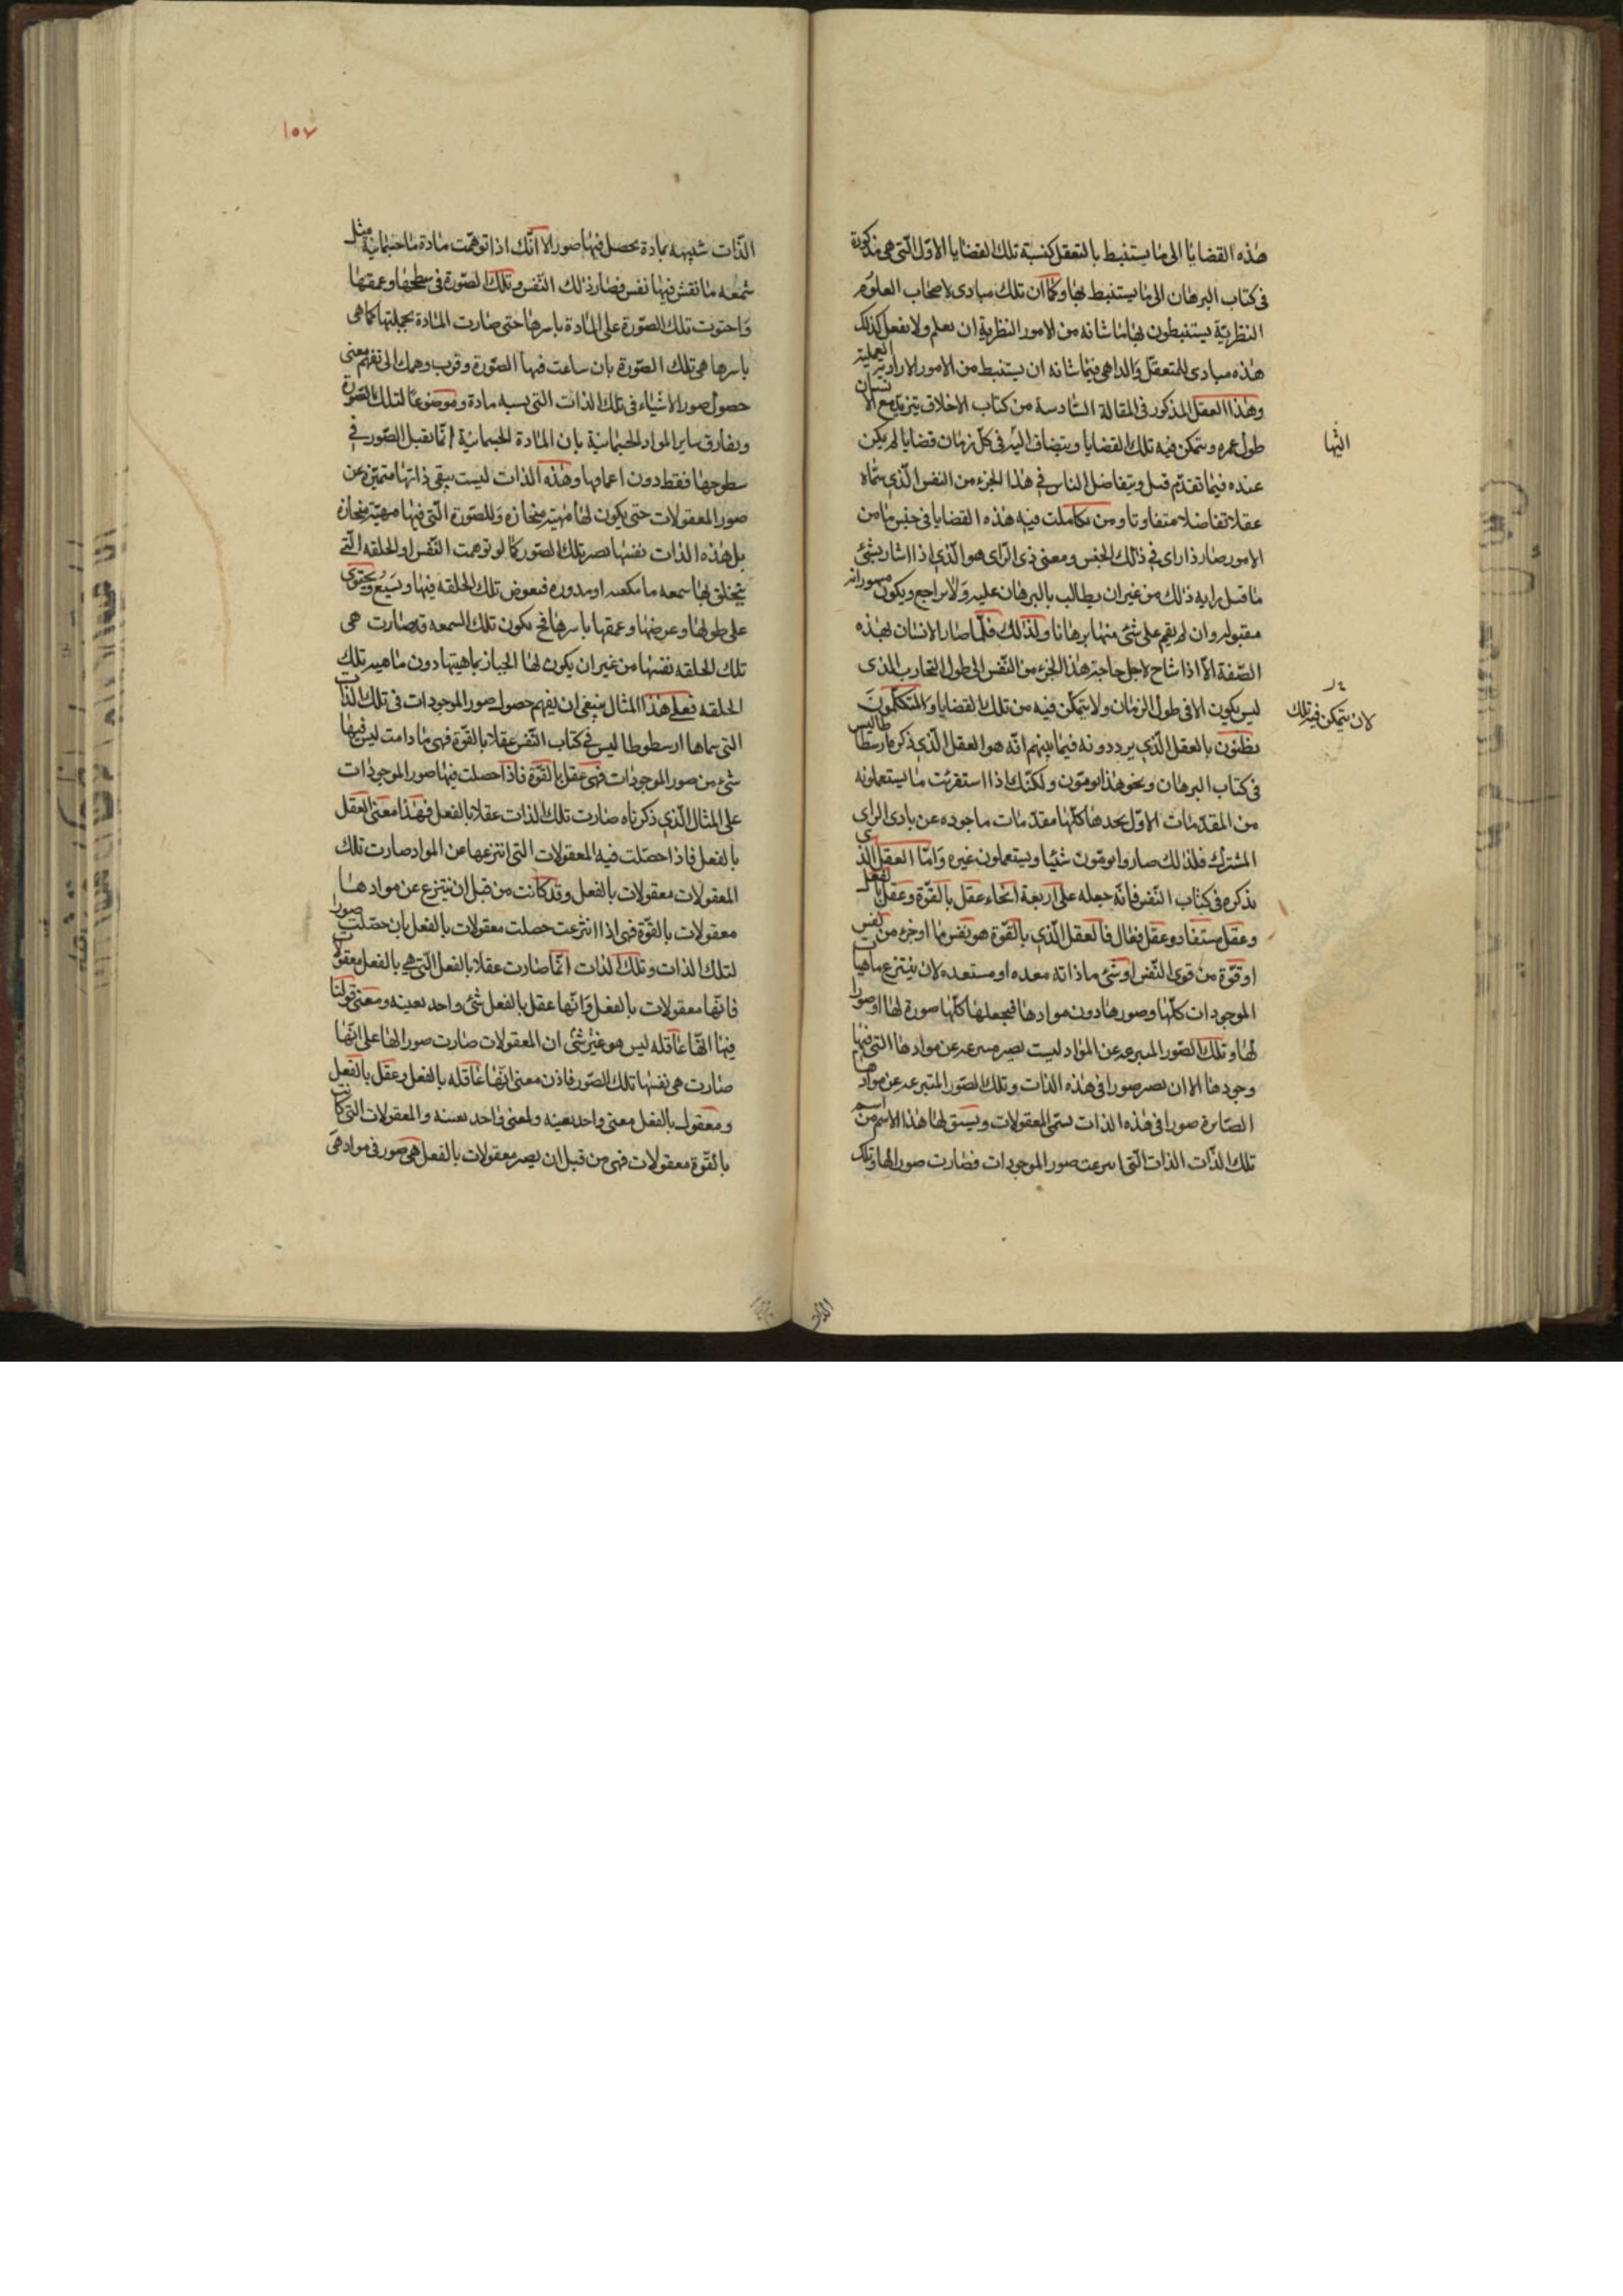 هذه القضايا الى ما يستنبط بالتعقل كنسبة تلك القضايا الاول التى هى مذكورة
فى كتاب البرهان الى ما يستنبط بها وكما ان تلك مبادى لاصحاب العلوم
النظرية يستنبطون بها ما شانه من الامور النظرية ان يعلم ولا يفعل كذلك
هذه مبادى للمتعقل والداهى فيما شانه ان يستنبط من الامور الارادية العملية
وهذا العقل المذكور فى المقالة السادسة من كتاب الاخلاق يتزيد مع الانسان
طول عمره ويتمكن فيه تلك القضايا ويتضاف اليه فى كل زمان قضايا لم يكن
اليها
عنده فيما تقدم قبل ويتفاضل الناس فى هذا الجزء من النفس الذى سماه
عقلا تفاضلا متفاوتا ومن تكاملت فيه هذه القضايا فى جنس ما من
الامور صار ذا راى فى ذلك الجنس ومعنى ذى الراى هو الذى اذا اشار بشئ
ما قبل رايه ذلك من غير ان يطالب بالبرهان عليه ولا يراجع ويكون
مقبوله وان لم يقم على شئ منها برهانا ولذلك قلما صار الانسان بهذه
الصفة الا اذا شاخ لاجل حاجة هذا الجزء من النفس الى طول التجارب الذى
ليس يكون الا فى طول الزمان ولا يتمكن فيه من تلك القضايا والمتكلمون
لان يتمكن فيه تلك
يظنون بالعقل الذى يرددونه فيما بينهم انه هو العقل الذى ذكره ارسطاطاليس
فى كتاب البرهان ونحو هذا يومون ولكنك اذا استقريت ما يستعملونه
من المقدمات الاول تجدها كلها مقدمات ماخوذه عن بادى الراى
المشترك فلذلك صاروا يومون شيئا ويستعملون غيره واما العقل الذى
يذكره فى كتاب النفس فانه جعله على اربعة انحاء عقل بالقوة وعقل بالفعل
وعقل مستفاد وعقل فعال فالعقل الذى بالقوة هو نفس ما او جزء من نفس
او قوة من قوى النفس او شئ ما ذاته معده او مستعده لان ينتزع ماهيات
الموجودات كلها وصورها دون موادها فيجعلها كلها صورة لها او صورا
لها وتلك الصور المنتزعه عن المواد ليست تصير منتزعه عن موادها التى فيها
وجودها الا ان تصير صورا فى هذه الذات وتلك الصور المنتزعه عن موادها
الصايرة صورا فى هذه الذات تسمى المعقولات ويشتق لها هذا الاسم من اسم
تلك الذات الذات التى انتزعت صور الموجودات فصارت صورا لها وتلك
الذات
١٥٧
الذات شبيهه بمادة تحصل فيها صور الا انك اذا توهمت مادة ما جسمانية مثل
شمعه ما نقش فيها نقش فصار ذلك النقش وتلك الصورة فى سطحها وعمقها
واحتوت تلك الصورة على المادة باسرها حتى صارت المادة بجملتها كما هى
باسرها هى تلك الصورة بان ساعت فيها الصورة وقرب وهمك الى تفهم معنى
حصول صور الاشياء فى تلك الذات التى تشبه مادة وموضوعا لتلك الصورة
ويفارق ساير المواد الجسمانية بان المادة الجسمانية انما تقبل الصور فى
سطوحها فقط دون اعماقها وهذه الذات ليست تبقى ذاتها متميزة عن
صور المعقولات حتى يكون لها مهية منحازه وللصورة التى فيها مهية منحازة
بل هذه الذات نفسها تصير تلك الصور كما لو توهمت النقش او الخلقه التى
يتخلق بها شمعه ما مكعبه او مدوره فتغوص تلك الخلقه فيها وتشيع ويحتوى
على طولها وعرضها وعمقها باسرها فح يكون تلك الشمعه قد صارت هى
تلك الخلقه نفسها من غير ان يكون لها انحياز بماهيتها دون ماهيه تلك
الخلقه فعلى هذا المثال ينبغى ان يفهم حصول صور الموجودات فى تلك الذات
التى سماها ارسطوطاليس فى كتاب النفس عقلا بالقوة فهى ما دامت ليس فيها
شئ من صور الموجودات فهى عقل بالقوة فاذا حصلت فيها صور الموجودات
على المثال الذى ذكرناه صارت تلك الذات عقلا بالفعل فهذا معنى العقل
بالفعل فاذا حصلت فيه المعقولات التى انتزعها عن المواد صارت تلك
المعقولات معقولات بالفعل وقد كانت من قبل ان ينتزع عن موادها
معقولات بالقوة فهى اذا انتزعت حصلت معقولات بالفعل بان حصلت صورا
لتلك الذات وتلك الذات انما صارت عقلا بالفعل التى هى بالفعل معقولات
فانها معقولات بالفعل وانها عقل بالفعل شئ واحد بعينه ومعنى قولنا
فيها انها عاقله ليس هو غير شئ ان المعقولات صارت صورا لها على انها
صارت هى نفسها تلك الصور فاذن معنى انها عاقله بالفعل وعقل بالفعل
ومعقول بالفعل معنى واحد بعينه ولمعنى واحد بعينه والمعقولات التى كانت
بالقوة معقولات فهى من قبل ان يصير معقولات بالفعل هى صور فى مواد هى